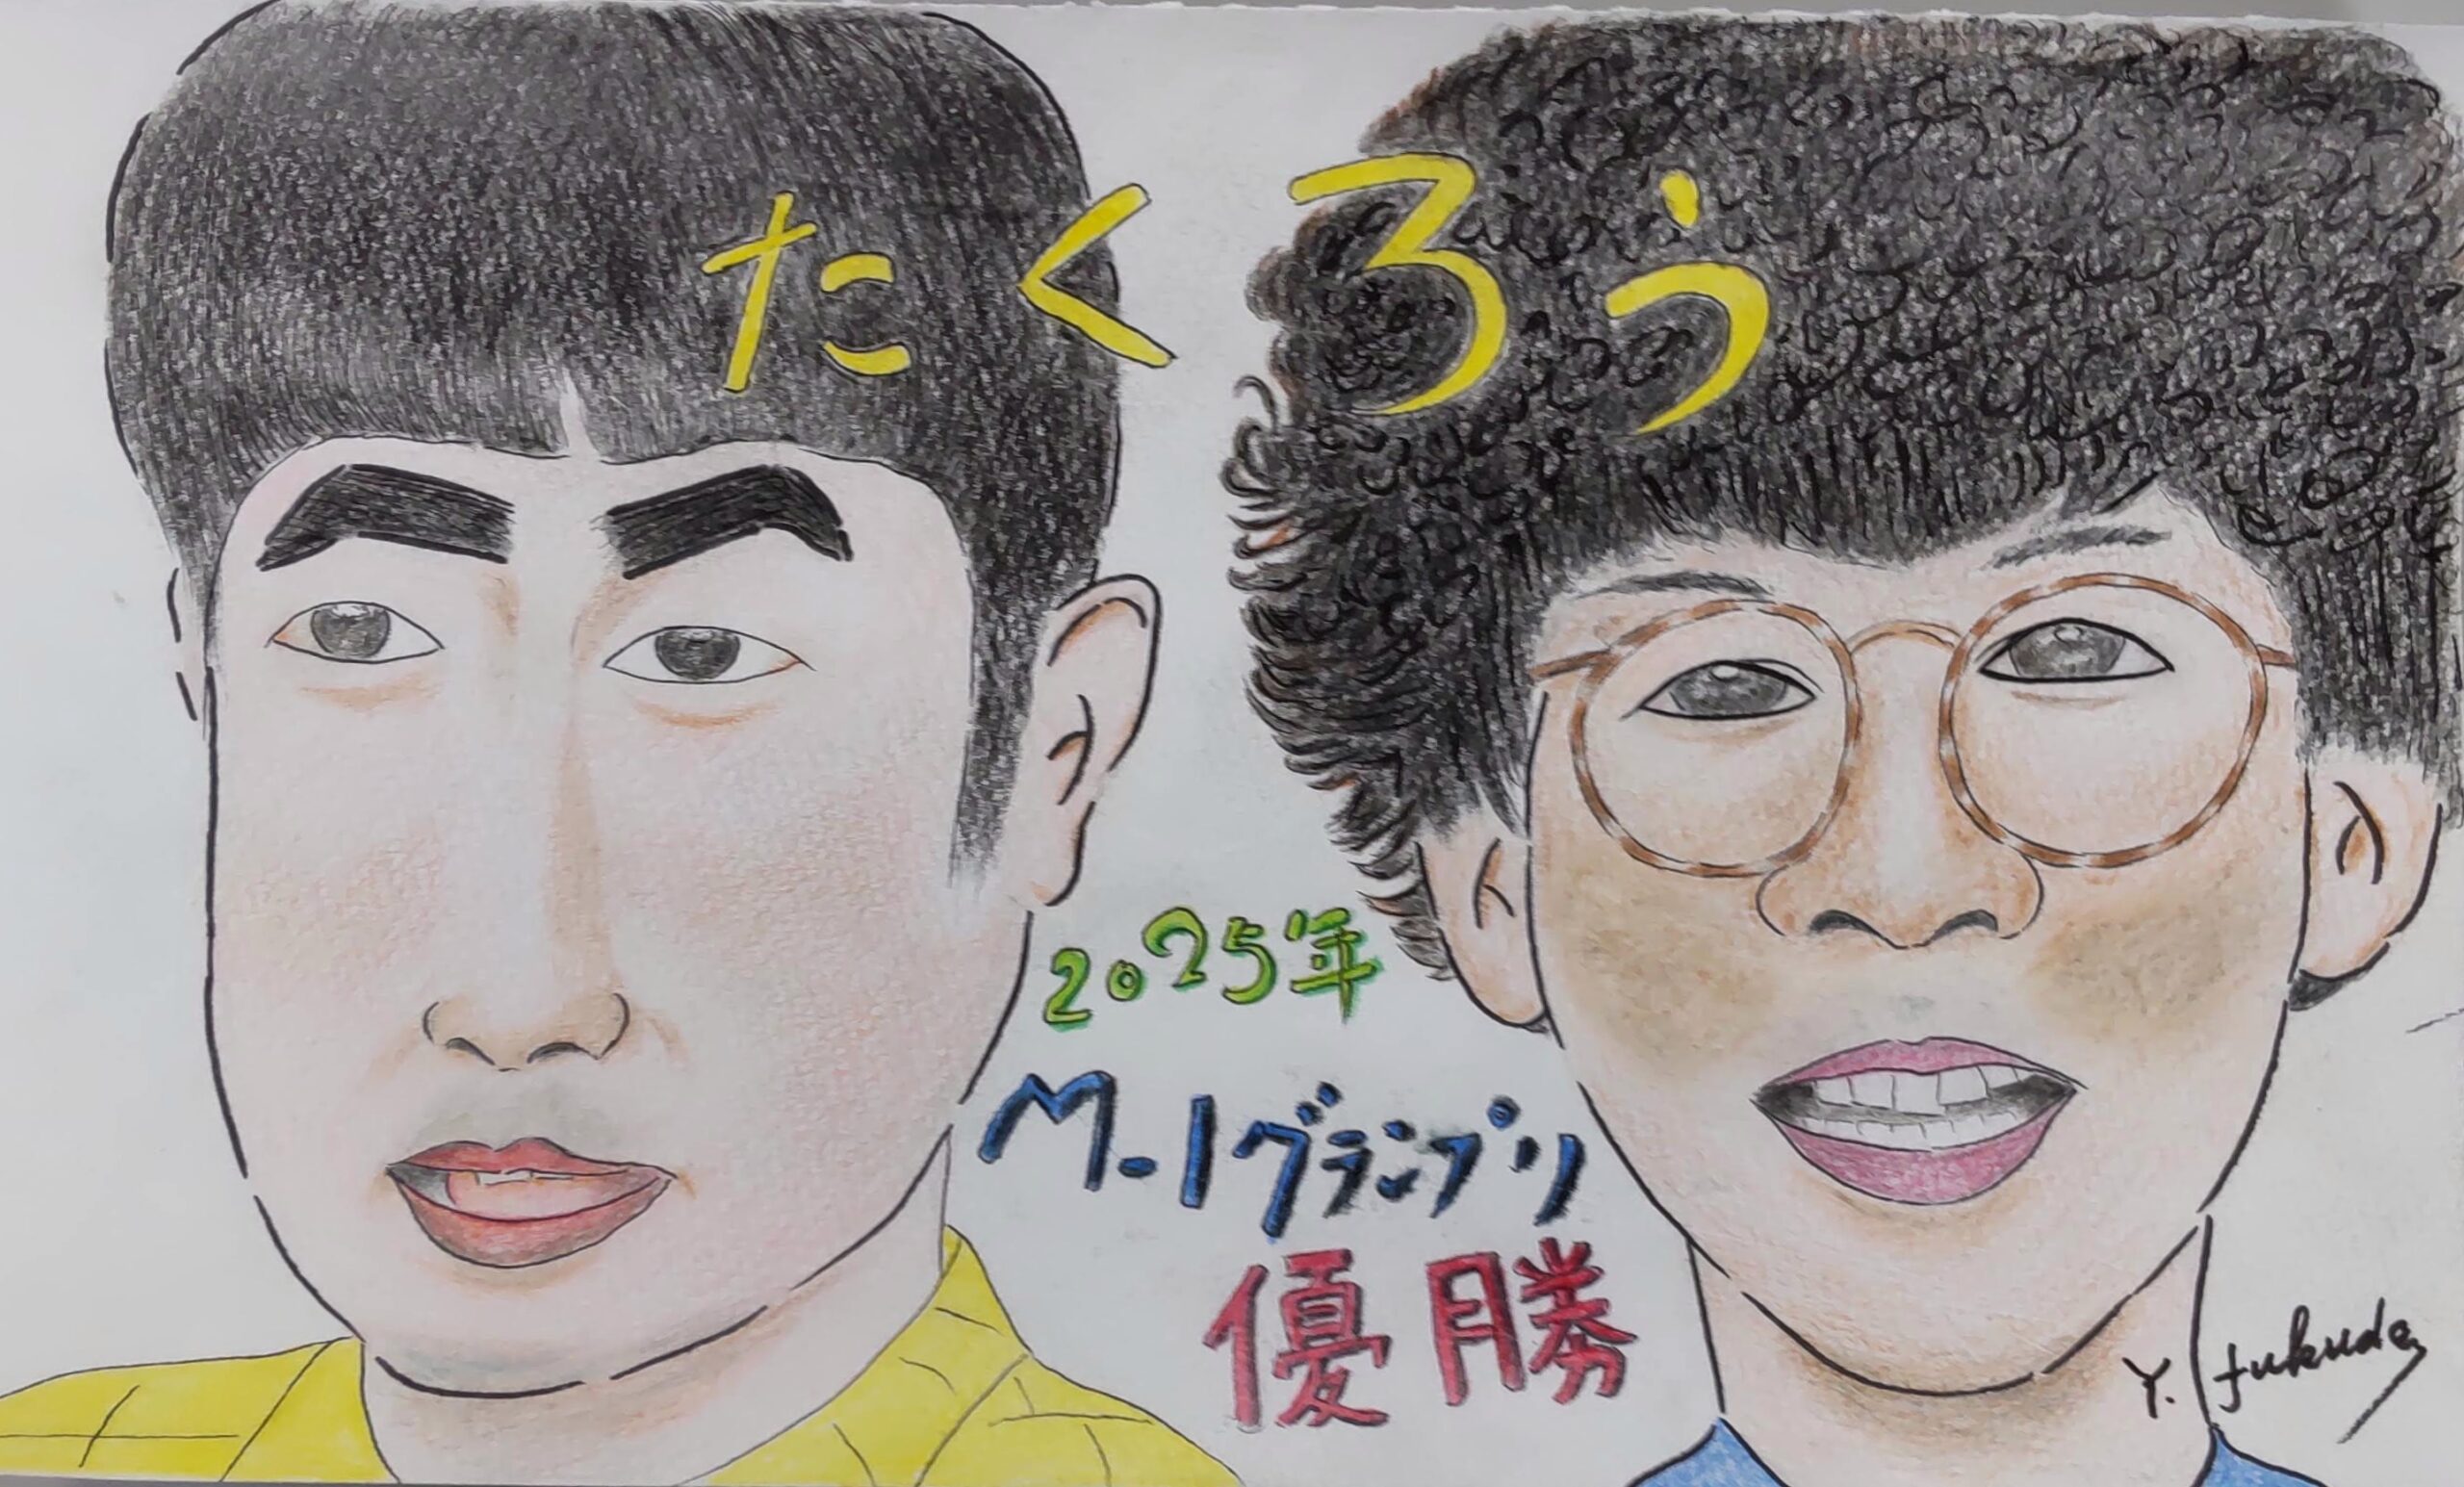 たくろう
2025年
M-1グランプリ
優勝
Y. fukuda